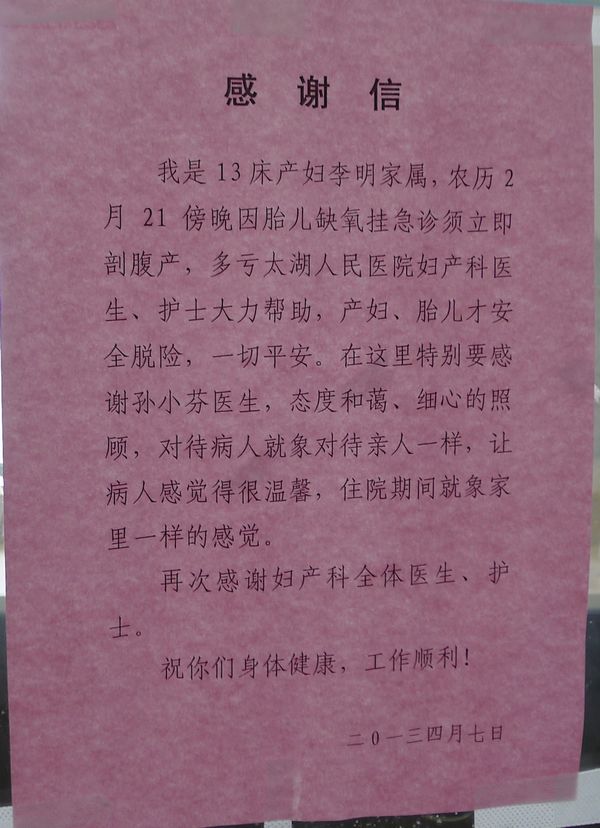 感 谢 信
我是 13床产妇李明家属，农历 2
月 21 傍晚因胎儿缺氧挂急诊须立即
剖腹产，多亏太湖人民医院妇产科医
生、护士大力帮助，产妇、胎儿才安
全脱险，一切平安。在这里特别要感
谢孙小芬医生，态度和蔼、细心的照
顾，对待病人就象对待亲人一样，让
病人感觉得很温馨，住院期间就象家
里一样的感觉。
再次感谢妇产科全体医生、护
士。
祝你们身体健康，工作顺利！
二0一三四月七日